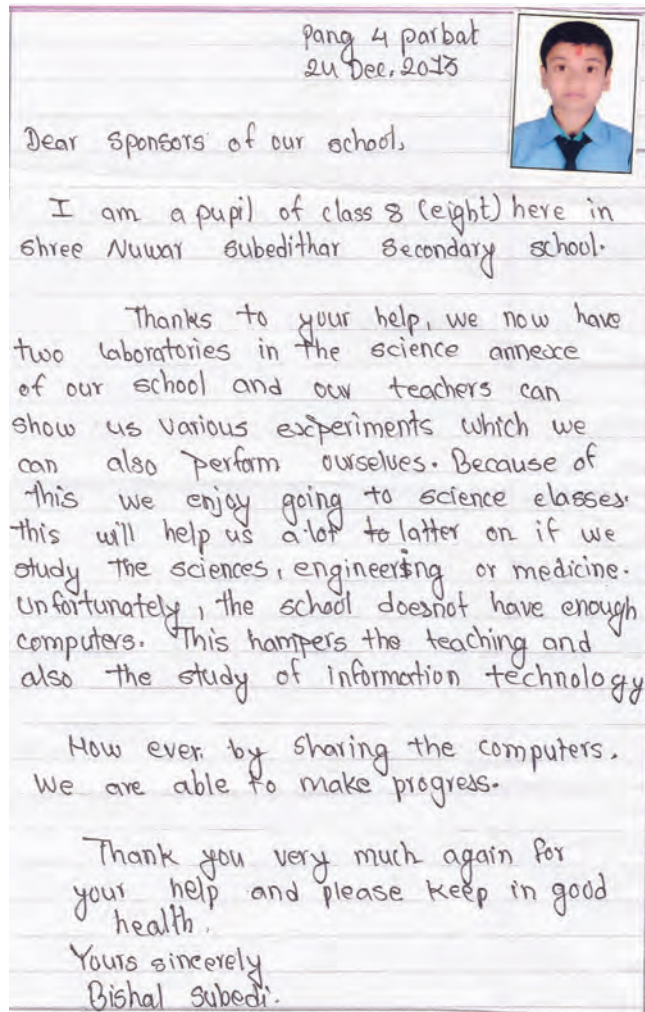 Pang 4 parbat
24 Dec. 2013
Dear sponsors of our school,
I am a pupil of class 8 (eight) here in
shree Nuwar subedithar secondary school.
Thanks to your help, we now have
two laboratories in the science annexe
of our school and our teachers can
show us various experiments which we
can also perform ourselves. Because of
this we enjoy going to science classes.
this will help us a lot to latter on if we
study the sciences, engineering or medicine.
Unfortunately, the school doesnot have enough
computers. This hampers the teaching and
also the study of information technology
How ever by sharing the computers.
We are able to make progress.
Thank you very much again for
your help and please keep in good
health.
Yours sincerely
Bishal Subedi.